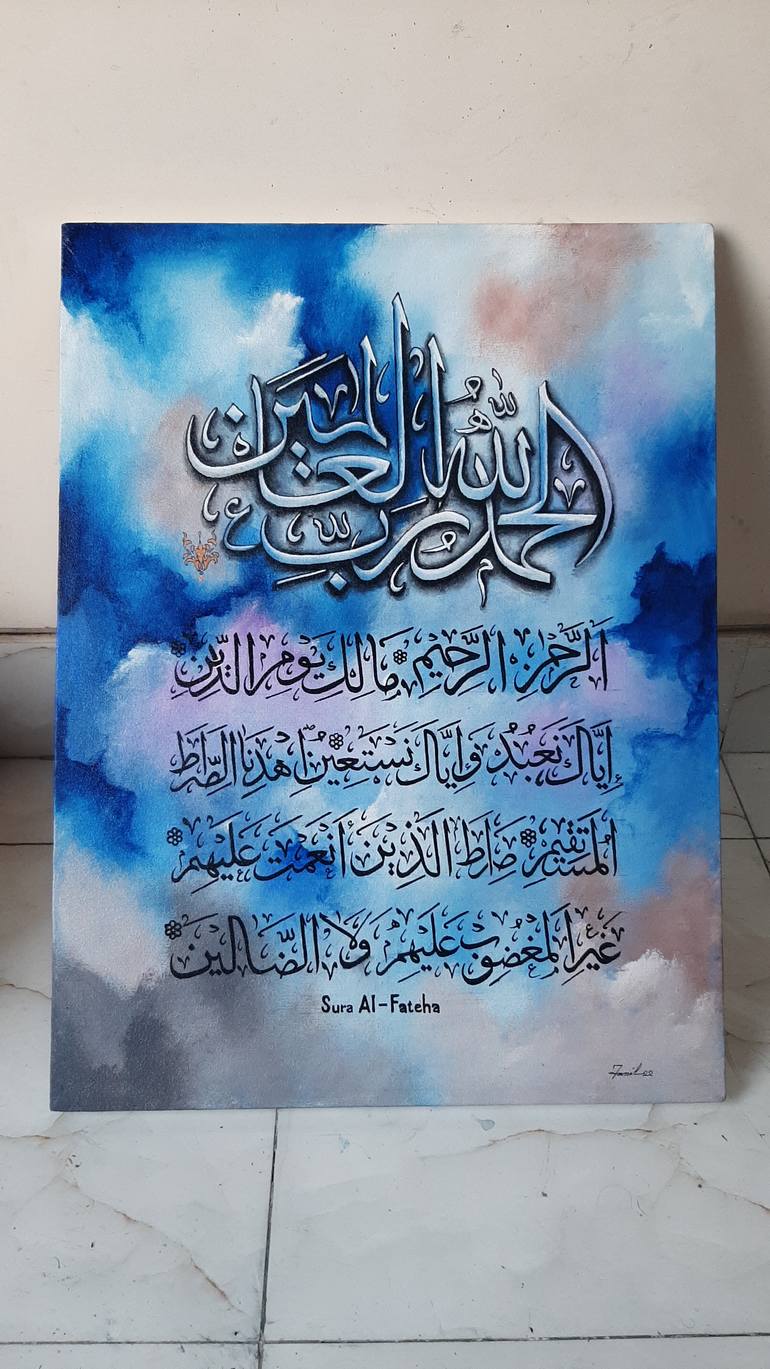 الحمد لله رب العالمين
الرَّحْمٰنِ الرَّحِيْمِ مَالِكِ يَوْمِ الدِّيْنِ
إِيَّاكَ نَعْبُدُ وَإِيَّاكَ نَسْتَعِيْنُ اِهْدِنَا الصِّرَاطَ
الْمُسْتَقِيْمَ صِرَاطَ الَّذِيْنَ أَنْعَمْتَ عَلَيْهِمْ
غَيْرِ الْمَغْضُوْبِ عَلَيْهِمْ وَلَا الضَّالِّيْنَ
Sura Al-Fateha